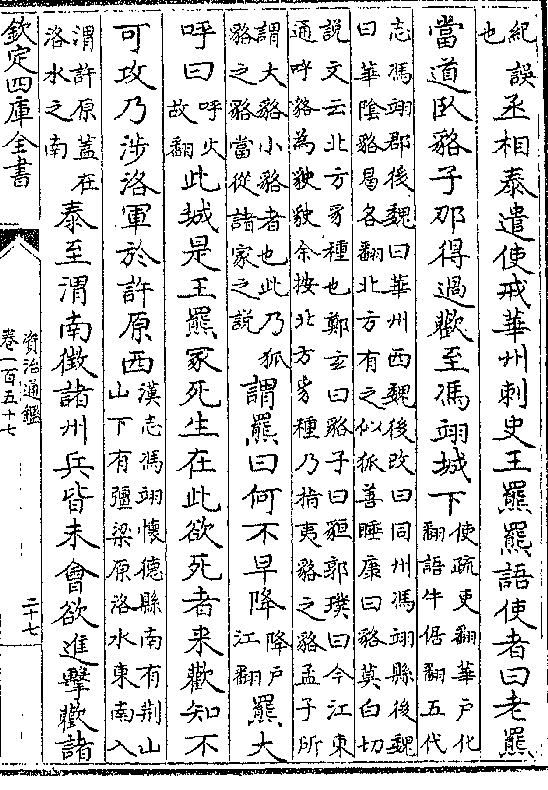 紀誤也丞相泰遣使戒華州刺史王羆羆語使者曰老羆
當道臥貉子那得過歡至馮翊城下使疏更翻華戶化翻語牛倨翻五代
志馮翊郡後魏曰華州西魏後改曰同州馮翊縣後魏曰華陰貉曷各翻北方有之似狐善睡康曰貉莫白切
說文云北方豸種也鄭玄曰貉子曰貆郭璞曰今江東通呼貉為余按北方豸種乃指夷貉之貉孟子所
謂大貉小貉者也此乃狐貉之貉當從諸家之說謂羆曰何不早降降戶江翻羆大
呼曰呼火故翻此城是王羆冢死生在此欲死者来歡知不
可攻乃涉洛軍於許原西漢志馮翊懷德縣南有荆山山下有彊梁原洛水東南入
渭許原蓋在洛水之南泰至渭南徵諸州兵皆未會欲進擊歡諸
欽定四庫全書
資治通鑑
卷一百五十七
二十七